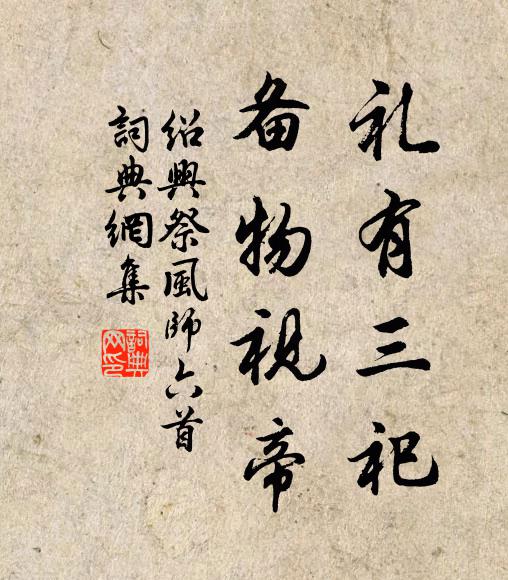 礼有三祀
备物视帝
绍興祭風師六首
詞典網集
詞典
网印